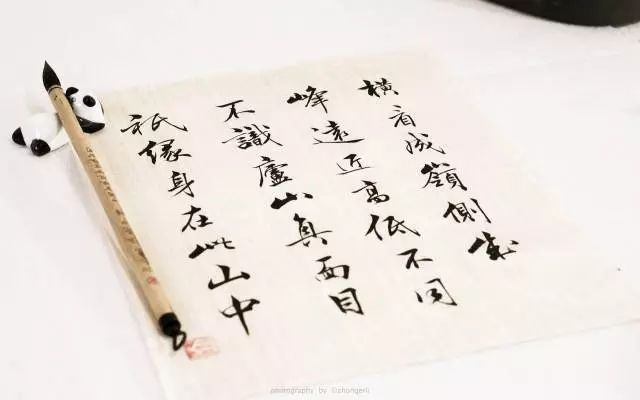 横看成嶺側成
峰遠近高低不同
不識廬山真面目
祇緣身在此山中
photography by